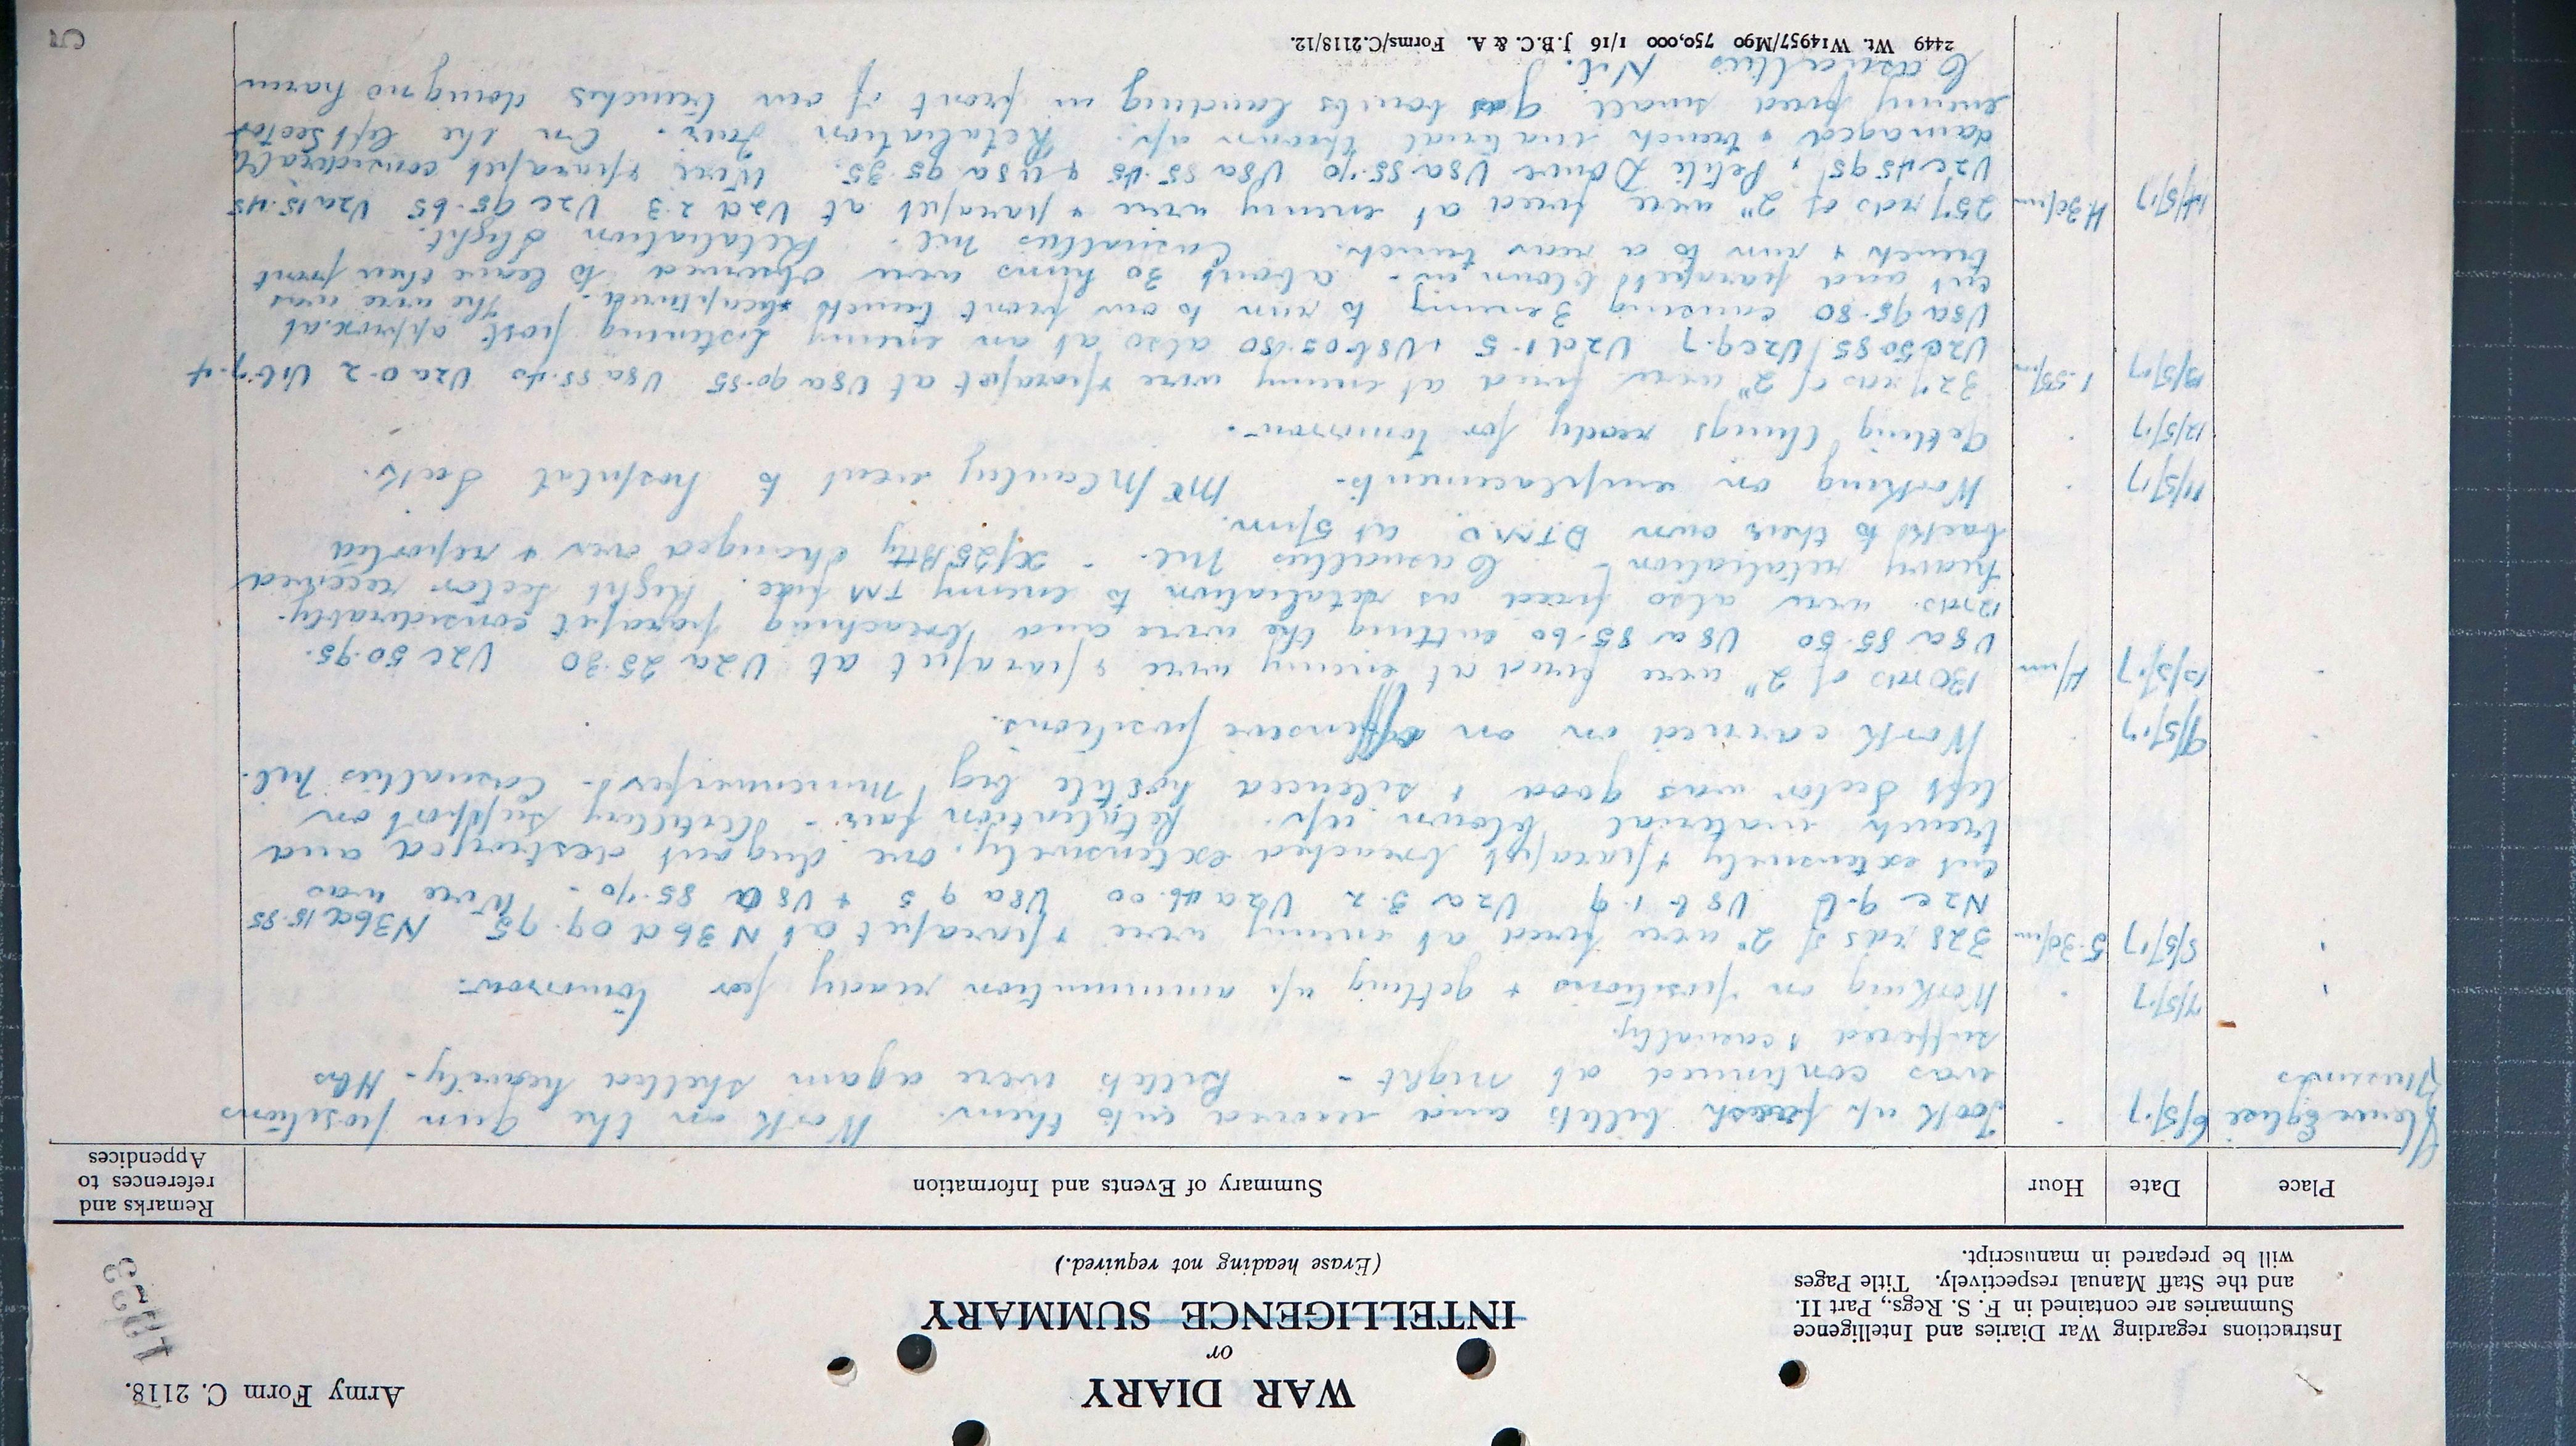 Army Form C. 2118.
WAR DIARY
or
INTELLIGENCE SUMMARY
(Erase heading not required.)
Instructions regarding War Diaries and Intelligence
Summaries are contained in F. S. Regs., Part II.
and the Staff Manual respectively. Title Pages
will be prepared in manuscript.
Place Date Hour Summary of Events and Information Remarks and references to Appendices
Neuve Eglise 6/5/17 Took up fresh billets and moved into them. Work on the gun positions
was continued at night - Billets were again shelled heavily -
suffered 1 casualty.
7/5/17 Working on positions + getting up ammunition ready for tomorrow.
8/5/17 5.30pm 328 rds of 2" were fired at enemy wire + parapet at N36d 09.95 N36d 15.85
U8b 1.9 U2a 3.2 U2a 46.00 U8a 9 5 + U8a 85.70 - Wire was
cut extensively + parapet breached extensively, one dugout destroyed and
trench material blown up. Retaliation fair - Artillery support on
left sector was good + silenced hostile big minenwerfers - Casualties nil.
9/5/17 Work carried on on offensive positions.
10/5/17 4pm 130 rds of 2" were fired at enemy wire & parapet at U2a 25.30 U2c 50.95.
U8a 85.50 U8a 85.60 cutting the wire and breaching parapet considerably.
12 rds. were also fired as retaliation to enemy TM fire. Right sector received
heavy retaliation - Casualties Nil. - X/25 Btty changed over + reported
back to their own D.T.M.O. at 5pm.
11/5/17 Working on emplacements - Mr McCauley went to hospital sick.
12/5/17 Getting things ready for tomorrow.
13/5/17 1.55pm 327 rds of 2" were fired at enemy wire + parapet at U8a 90.55 U8a 55.40 U2a 0.2 U1b 7.4
U2c 50.85 U2c 9.7 U2d 1.5 + U8b 05.80 also at an enemy listening post approx. at
U8a 95.80 causing 3 enemy to run to our front trench + be captured. The wire was
cut and parapets blown in - about 30 huns were observed to leave their front
trench + run to a rear trench. Casualties nil. Retaliation slight.
14/5/17 4.30pm 257 rds of 2" were fired at enemy wire + parapet at U2d 2.3 U2c 95.65 U2a 15.45
U2c 45.95, Petite Douve U8a 55.70 U8a 55.45 + U8a 95.35. Wire + parapet considerably
damaged + trench material thrown up. Retaliation fair. On the left sector
enemy fired small gas bombs landing in front of our trenches doing no harm
Casualties Nil.
2449 Wt. W14957/M90 750,000 1/16 J.B.C. & A. Forms/C.2118/12.
5